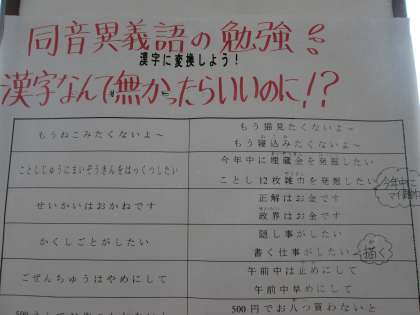 同音異義語の勉強!!
漢字に変換しよう!
漢字なんて無かったらいいのに!?
もうねこみたくないよ~
もう猫見たくないよ~
もう寝込みたくないよ~
ことしじゅうにまいぞうきんをはっくつしたい
今年中に埋蔵金を発掘したい
ことし12枚雑巾を発掘したい
今年中に
せいかいはおかねです
正解はお金です
政界はお金です
かくしごとがしたい
隠し事がしたい
書く仕事がしたい
描く
ごぜんちゅうはやめにして
午前中は止めにして
午前中早めにして
500円でお八つ買わないと